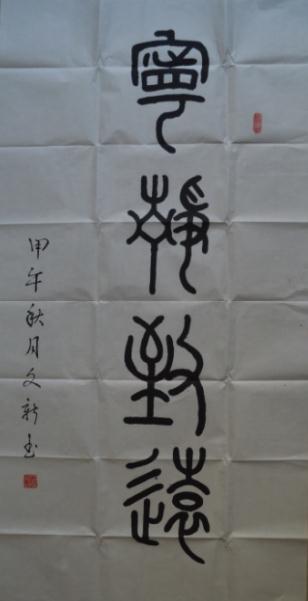 寧靜致遠
甲午秋月文新書